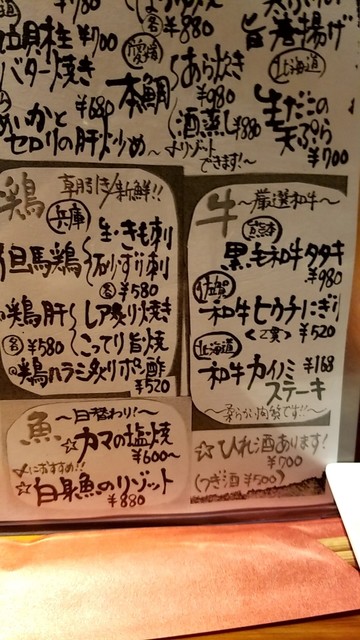 ¥700
バター焼き
¥680
セロリの肝炒め
各¥880
愛媛
本鯛
あら炊き
¥980
酒蒸し¥880
〜よりリゾート
できます!〜
旨唐揚げ
北海道
生だこの
天ぷら
¥700
鶏
朝引き/新鮮!!
兵庫
但馬鶏
生・きも刺
砂ずり刺
各¥580
鶏肝
各¥580
レア炙り焼き
こってり旨焼
鶏ハラミ炙りポン酢
¥520
牛
〜厳選和牛〜
宮崎
黒毛和牛タタキ
¥980
和牛ヒウチにぎり
<二貫> ¥520
北海道
和牛カイノミ
ステーキ
〜柔らかい肉質です!!〜
魚
〜日替わり!〜
☆カマの塩焼
¥600〜
〆におすすめ!!
☆白身魚のリゾット
¥880
☆ひれ酒あります!
¥700
(つぎ酒 ¥500)